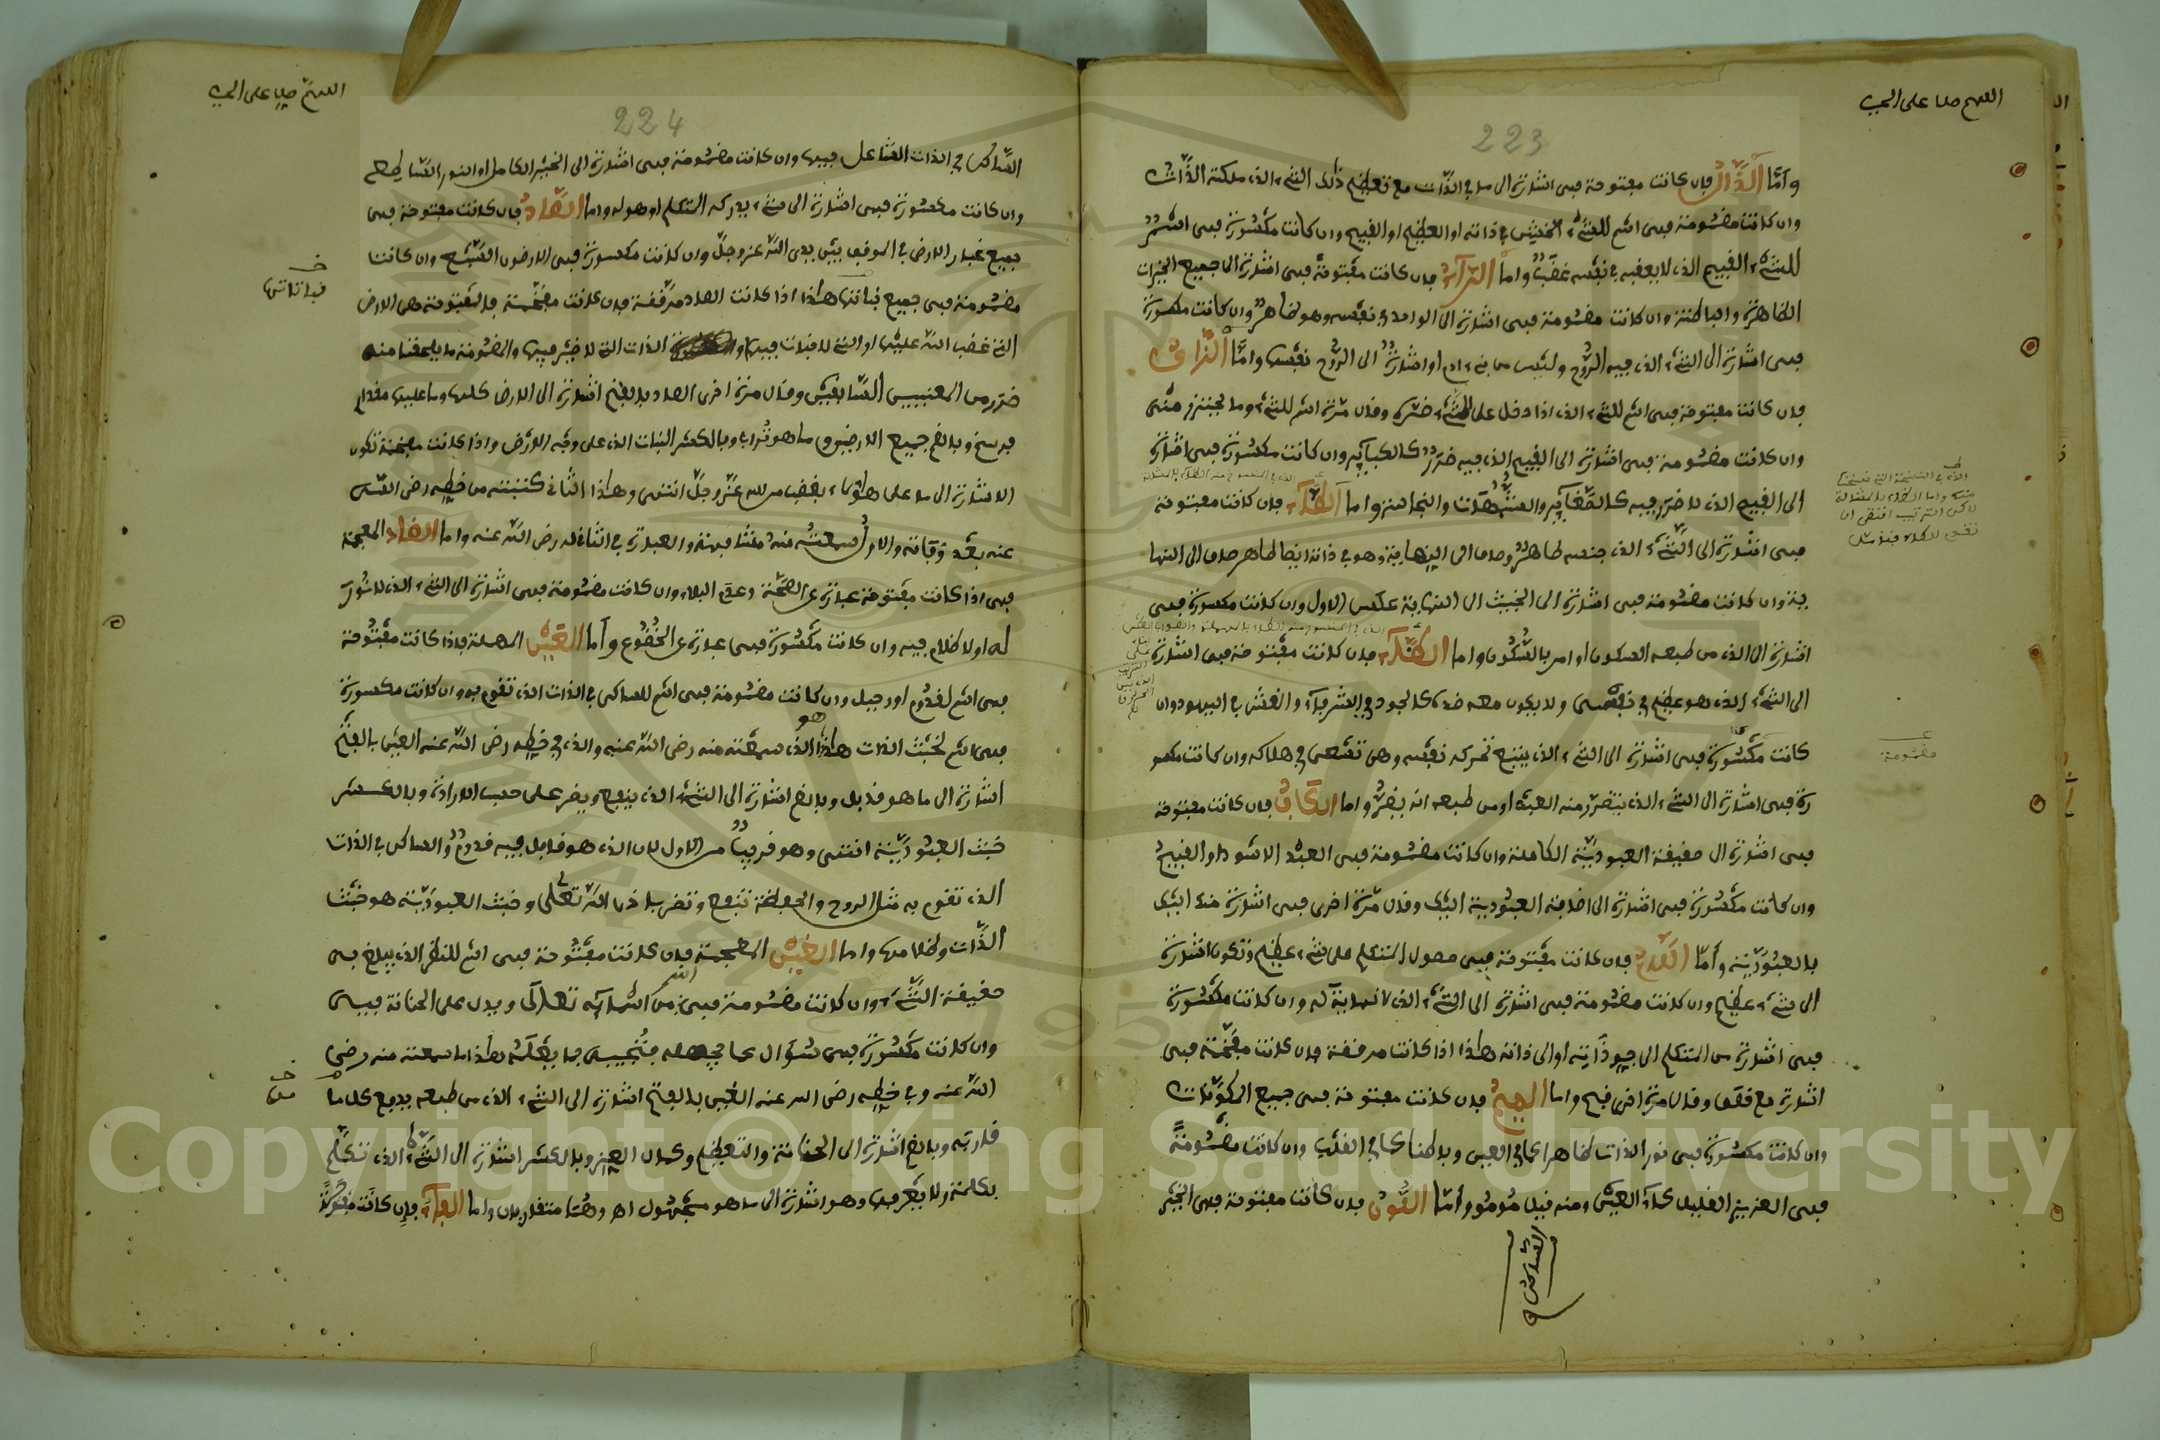 اللهم صل على الحبيب
223
وأما الذال فإن كانت مفتوحة فهى اشارة الى ما فى الذات مع تعظيم ذلك الشىء الذى ملكته الذات
وان كانت مضمومة فهى اسم للشىء الخشن فى ذاته او العظيم او القبيح وان كانت مكسورة فهى اسم
للشىء القبيح الذى لا يعقبه فى نفسه غضب واما الراء فان كانت مفتوحة فهى اشارة الى جميع الخيرات
الظاهرة والباطنة وان كانت مضمومة فهى اشارة الى الواحد فى نفسه وهو ظاهر وان كانت مكسورة
فهى اشارة الى الشىء الذى فيه الروح وليس من بنى ادم او اشارة الى الروح نفسها واما الزاى
فان كانت مفتوحة فهى اسم للشىء الذى اذا دخل على الشىء ضره وقال مرة اسم للشىء وما يحترز منه
وان كانت مضمومة فهى اشارة الى القبيح الذى فيه ضرر كالكبائر وان كانت مكسورة فهى اشارة
الى القبيح الذى لا ضرر فيه كالصغائر والشبهات والنجاسة واما الطاء فان كانت مفتوحة
فهى اشارة الى الشىء الذى جنسه طاهر وصاف الى النهاية وهو فى ذاته ايضا طاهر صاف الى النها
ية وان كانت مضمومة فهى اشارة الى الخبيث الى النهاية عكس الاول وان كانت مكسورة فهى
اشارة الى الذى من طبعه السكون او امر بالسكون واما الظاء فان كانت مفتوحة فهى اشارة
الى الشىء الذى هو عظيم فى نفسه ولا يكون معه ضده كالجود فى الشرفاء والغش فى اليهود وان
كانت مكسورة فهى اشارة الى الشىء الذى يتبع تحركه نفسه وهى تسعى فى هلاكه وان كانت مكسو
رة فهى اشارة الى الشىء الذى يتضرر منه العبد او من طبعه انه يضر واما الكاف فان كانت مفتوحة
فهى اشارة الى حقيقة العبودية الكاملة وان كانت مضمومة فهى العبد الاسود او القبيح
وان كانت مكسورة فهى اشارة الى اضافة العبودية اليك وقال مرة اخرى فهى اشارة منك اليك
بالعبودية وأما اللام فان كانت مفتوحة فهى حصول المتكلم على شىء عظيم وتكون اشارة
الى شىء عظيم وان كانت مضمومة فهى اشارة الى الشىء الذى لا نهاية له وان كانت مكسورة
فهى اشارة من المتكلم الى جود ذاته او الى ذاته هذا اذا كانت مرققة فان كانت مفخمة فهى
اشارة مع قلق وقال مرة اخرى قبح واما الميم فان كانت مفتوحة فهى جميع المكونات
وان كانت مكسورة فهى نور الذات ظاهرا كما فى العين وباطنا كما فى القلب وان كانت مضمومة
فهى العزيز القليل كماء العين ومنه قيل مومو وأما النون فان كانت مفتوحة فهى الخير
الساكن
مضمومة
اللهم صل على الحبيب
224
الساكن فى الذات الشاعل فيها وان كانت مضمومة فهى اشارة الى الخير الكامل او النور الساطع
وان كانت مكسورة فهى اشارة الى شىء يدركه المتكلم او هو له واما الصاد فان كانت مفتوحة فهى
جميع غبار الارض فى الموقف بين يدى الله عز وجل وان كانت مكسورة فهى الارضون السبع وان كانت
مضمومة فهى جميع نباتها هذا اذا كانت الصاد مرققة فان كانت مفخمة فالمفتوحة هى الارض
التى غضب الله عليها او التى لا نبات فيها او الذات التى لا خير فيها والمضمومة ما يلحقنا منه
ضرر من المعنيين السابقين وقال مرة اخرى الصاد بالفتح اشارة الى الارض كلها وما عليها مقدار
فرسخ وبالضم جميع الارضين ما هو تراب وبالكسر النبات الذى على وجه الارض واذا كانت مفخمة تكون
الاشارة الى ما على هؤلاء بغضب من الله عز وجل انتهى وهذا الثانى كتبته من خطه رضى الله
عنه بعد وفاته والاول سمعته منه مشافهة والعبارة فى الثانى له رضى الله عنه واما الضاد المعجمة
فهى اذا كانت مفتوحة عبارة عن الصحة وعدم البلاء وان كانت مضمومة فهى اشارة الى الشىء الذى لا نور
له او لا ظلام فيه وان كانت مكسورة فهى عبارة عن الخضوع واما العين المهملة فاذا كانت مفتوحة
فهى اسم لقدوم او رحيل وان كانت مضمومة فهى اسم للساكن فى الذات الذى تقوم به وان كانت مكسورة
فهى اسم لخبث الذات هذا هو الذى سمعته منه رضى الله عنه والذى فى خطه رضى الله عنه العين بالفتح
اشارة الى ما هو قابل وبالضم اشارة الى الشىء الذى ينفع ويضر على حسب الارادة وبالكسر
خبث العبودية انتهى وهو قريب من الاول لان الذى هو قابل فيه قدوم والساكن فى الذات
الذى تقوم به مثل الروح والحفظة تنفع وتضر باذن الله تعالى وخبث العبودية هو خبث
الذات وظلامها واما الغين المعجمة فان كانت مفتوحة فهى اسم للنظر الذى يبلغ به
حقيقة الشىء وان كانت مضمومة فهى من اسمائه تعالى ويدل على الحنانة فيه
وان كانت مكسورة فهى سؤال عما يجهله فتجيب بما يعلمه هذا ما سمعته منه رضى
الله عنه وفى خطه رضى الله عنه الغين بالفتح اشارة الى الشىء الذى من طبعه يدفع كل ما
قاربه وبالضم اشارة الى الحنانة والتعظيم وكمال العز وبالكسر اشارة الى الشىء الذى تكلم
بكلمة ولا يعرفها وهو اشارة الى ما هو مجهول اه وهما متقاربان واما الفاء فإن كانت مفتوحة